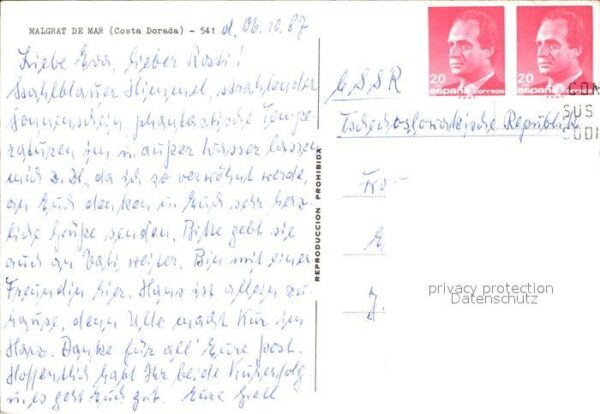 MALGRAT DE MAR (Costa Dorada) - 541 d. 06.10.87
Liebe Eva, lieber Rossi!
Stahlblauer Himmel, strahlender
Sonnenschein, phantastische Tempe-
raturen im u. außer Wasser lassen
mich z. Zt., da ich so verwöhnt werde,
an Euch denken u. Euch sehr herz-
liche Grüße senden. Bitte gebt sie
auch an Vati weiter. Bin mit einer
Freundin hier. Hans ist allein zu-
hause, denn Ulle macht Kur im
Harz. Danke für all' Eure Post.
Hoffentlich habt Ihr beide Kurerfolg
u. es geht Euch gut. Eure Grell
REPRODUCCION PROHIBIDA
20 españa correos
20 españa correos
CON
SUS
CODI
ČSSR
Tschechoslowakische Republik
E
J.
privacy protection
Datenschutz